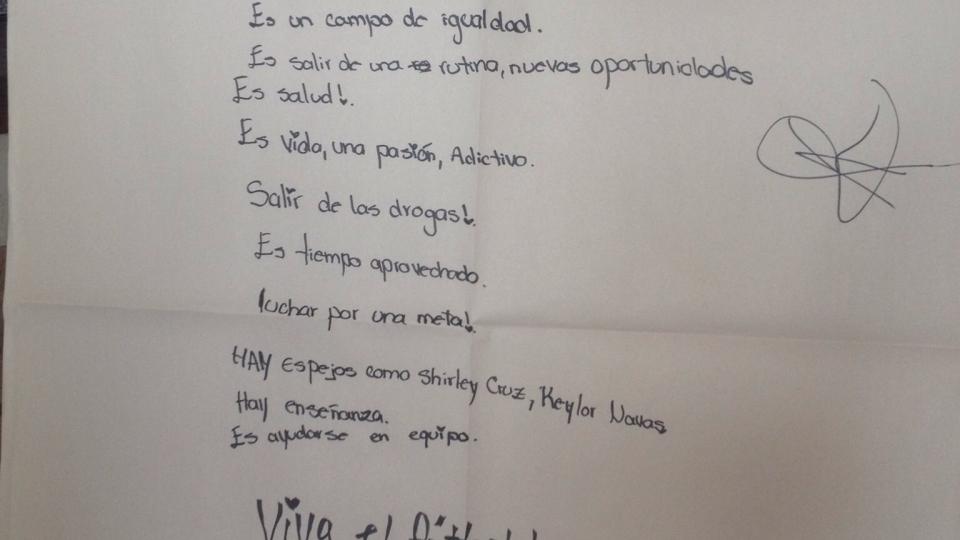 Es un campo de igualdad.
Es salir de una rutina, nuevas oportunidades
Es salud!.
Es vida, una pasión, Adictivo.
Salir de las drogas!.
Es tiempo aprovechado.
luchar por una meta!.
HAY Espejos como Shirley Cruz, Keylor Navas
Hay enseñanza.
Es ayudarse en equipo.
Viva el